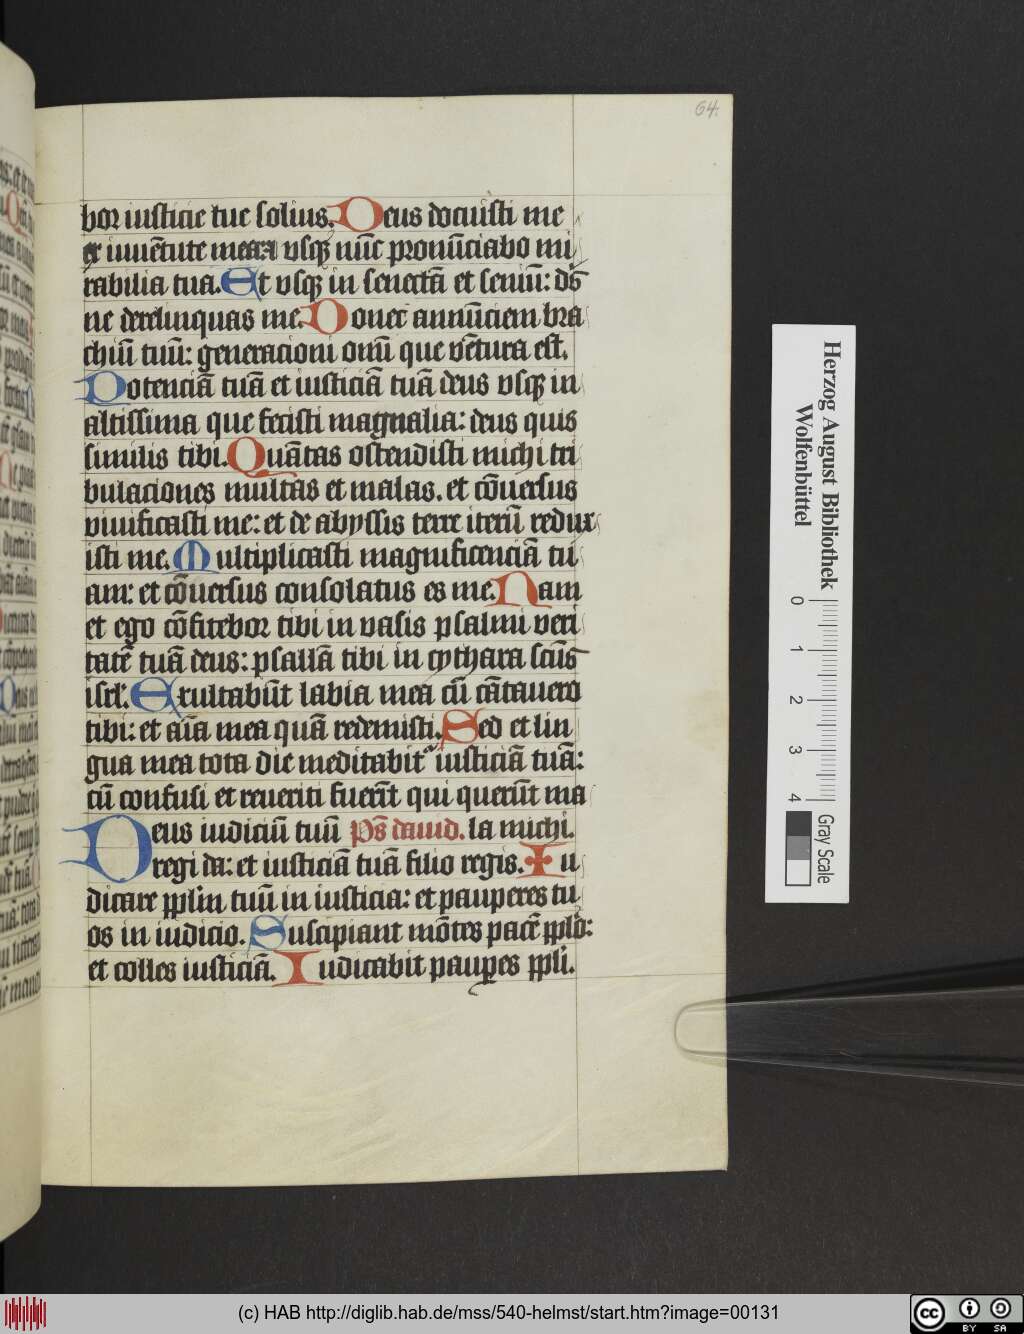 64.
bor iusticie tue solius. Deus docuisti me
ex iuuētute mea⁊a vsqꝫ nūc pronūciabo mi
rabilia tua. Et vsqꝫ in senectā et seniū: ds̄
ne derelinquas me. Donec annūciem bra
chiū tuū: generacioni omī que vētura est.
Potenciā tuā et iusticiā tuā deus vsqꝫ in
altissima que fecisti magnalia: deus quis
similis tibi. Quātas ostendisti michi tri
bulaciones multas et malas. et cōuersus
viuificasti me: et de abyssis terre iterū redux
isti me. Multiplicasti magnificenciā tu
am: et cōuersus consolatus es me. Nam
et ego cōfitebor tibi in vasis psalmi veri
tatē tuā deus: psallā tibi in cythara scūs
isrl'. Exultabūt labia mea cū cātauero
tibi: et aīa mea quā redemisti. Sed et lin
gua mea tota die meditabit᷑ iusticiā tuā:
cū confusi et reueriti fuerīt qui querūt ma
Deus iudiciū tuū Ps̄ dauid. la michi.
regi da: et iusticiā tuā filio regis. Iu
dicare ppl'm tuū in iusticia: et pauperes tu
os in iudicio. Suscipiant mōtes pacē pplo:
et colles iusticiā. Iudicabit paupes ppli.
Herzog August Bibliothek
Wolfenbüttel
0 1 2 3 4
Gray Scale
(c) HAB http://diglib.hab.de/mss/540-helmst/start.htm?image=00131
cc BY SA